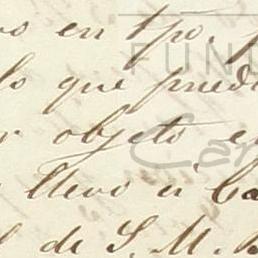 en tpo.
lo que pued
objeto e
llevo á Ca
de S. M.
FUND
Car